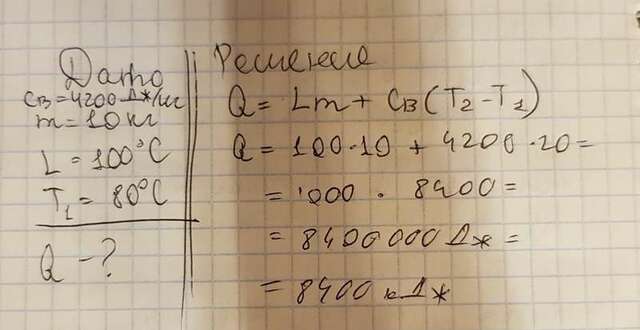 Дато
Cв=4200Дж/кг
m=10кг
L=100°C
T₁=80°C
Q-?
Решение
Q=Lm+Cв(T₂-T₁)
Q=100·10+4200·20=
=1000·8400=
=8400000Дж=
=8400кДж